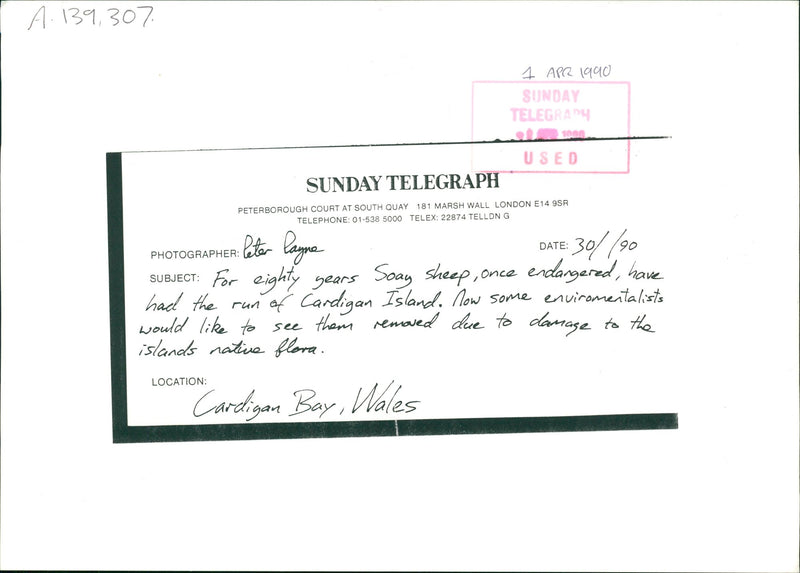 A.139,307.
1 APR 1990
SUNDAY
TELEGRAPH
1990
USED
SUNDAY TELEGRAPH
PETERBOROUGH COURT AT SOUTH QUAY 181 MARSH WALL LONDON E14 9SR
TELEPHONE: 01-538 5000 TELEX: 22874 TELLDN G
PHOTOGRAPHER: Peter Payne DATE: 30/1/90
SUBJECT: For eighty years Soay sheep, once endangered, have
had the run of Cardigan Island. Now some enviromentalists
would like to see them removed due to damage to the
islands native flora.
LOCATION:
Cardigan Bay, Wales